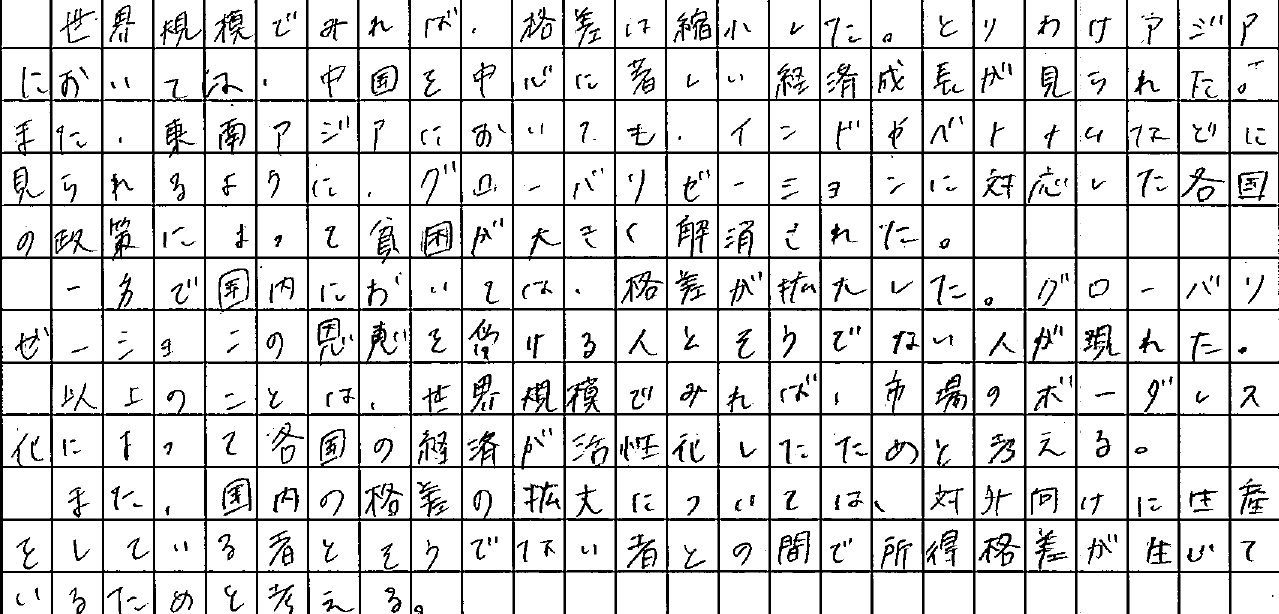 世界規模でみれば、格差は縮小した。とりわけアジア
においては、中国を中心に著しい経済成長が見られた。
また、東南アジアにおいても、インドやベトナムなどに
見られるように、グローバリゼーションに対応した各国
の政策によって貧困が大きく解消された。
一方で国内においては、格差が拡大した。グローバリ
ゼーションの恩恵を受ける人とそうでない人が現れた。
以上のことは、世界規模でみれば、市場のボーダレス
化によって各国の経済が活性化したためと考える。
また、国内の格差の拡大については、対外向けに生産
をしている者とそうではない者との間で所得格差が生じて
いるためと考える。